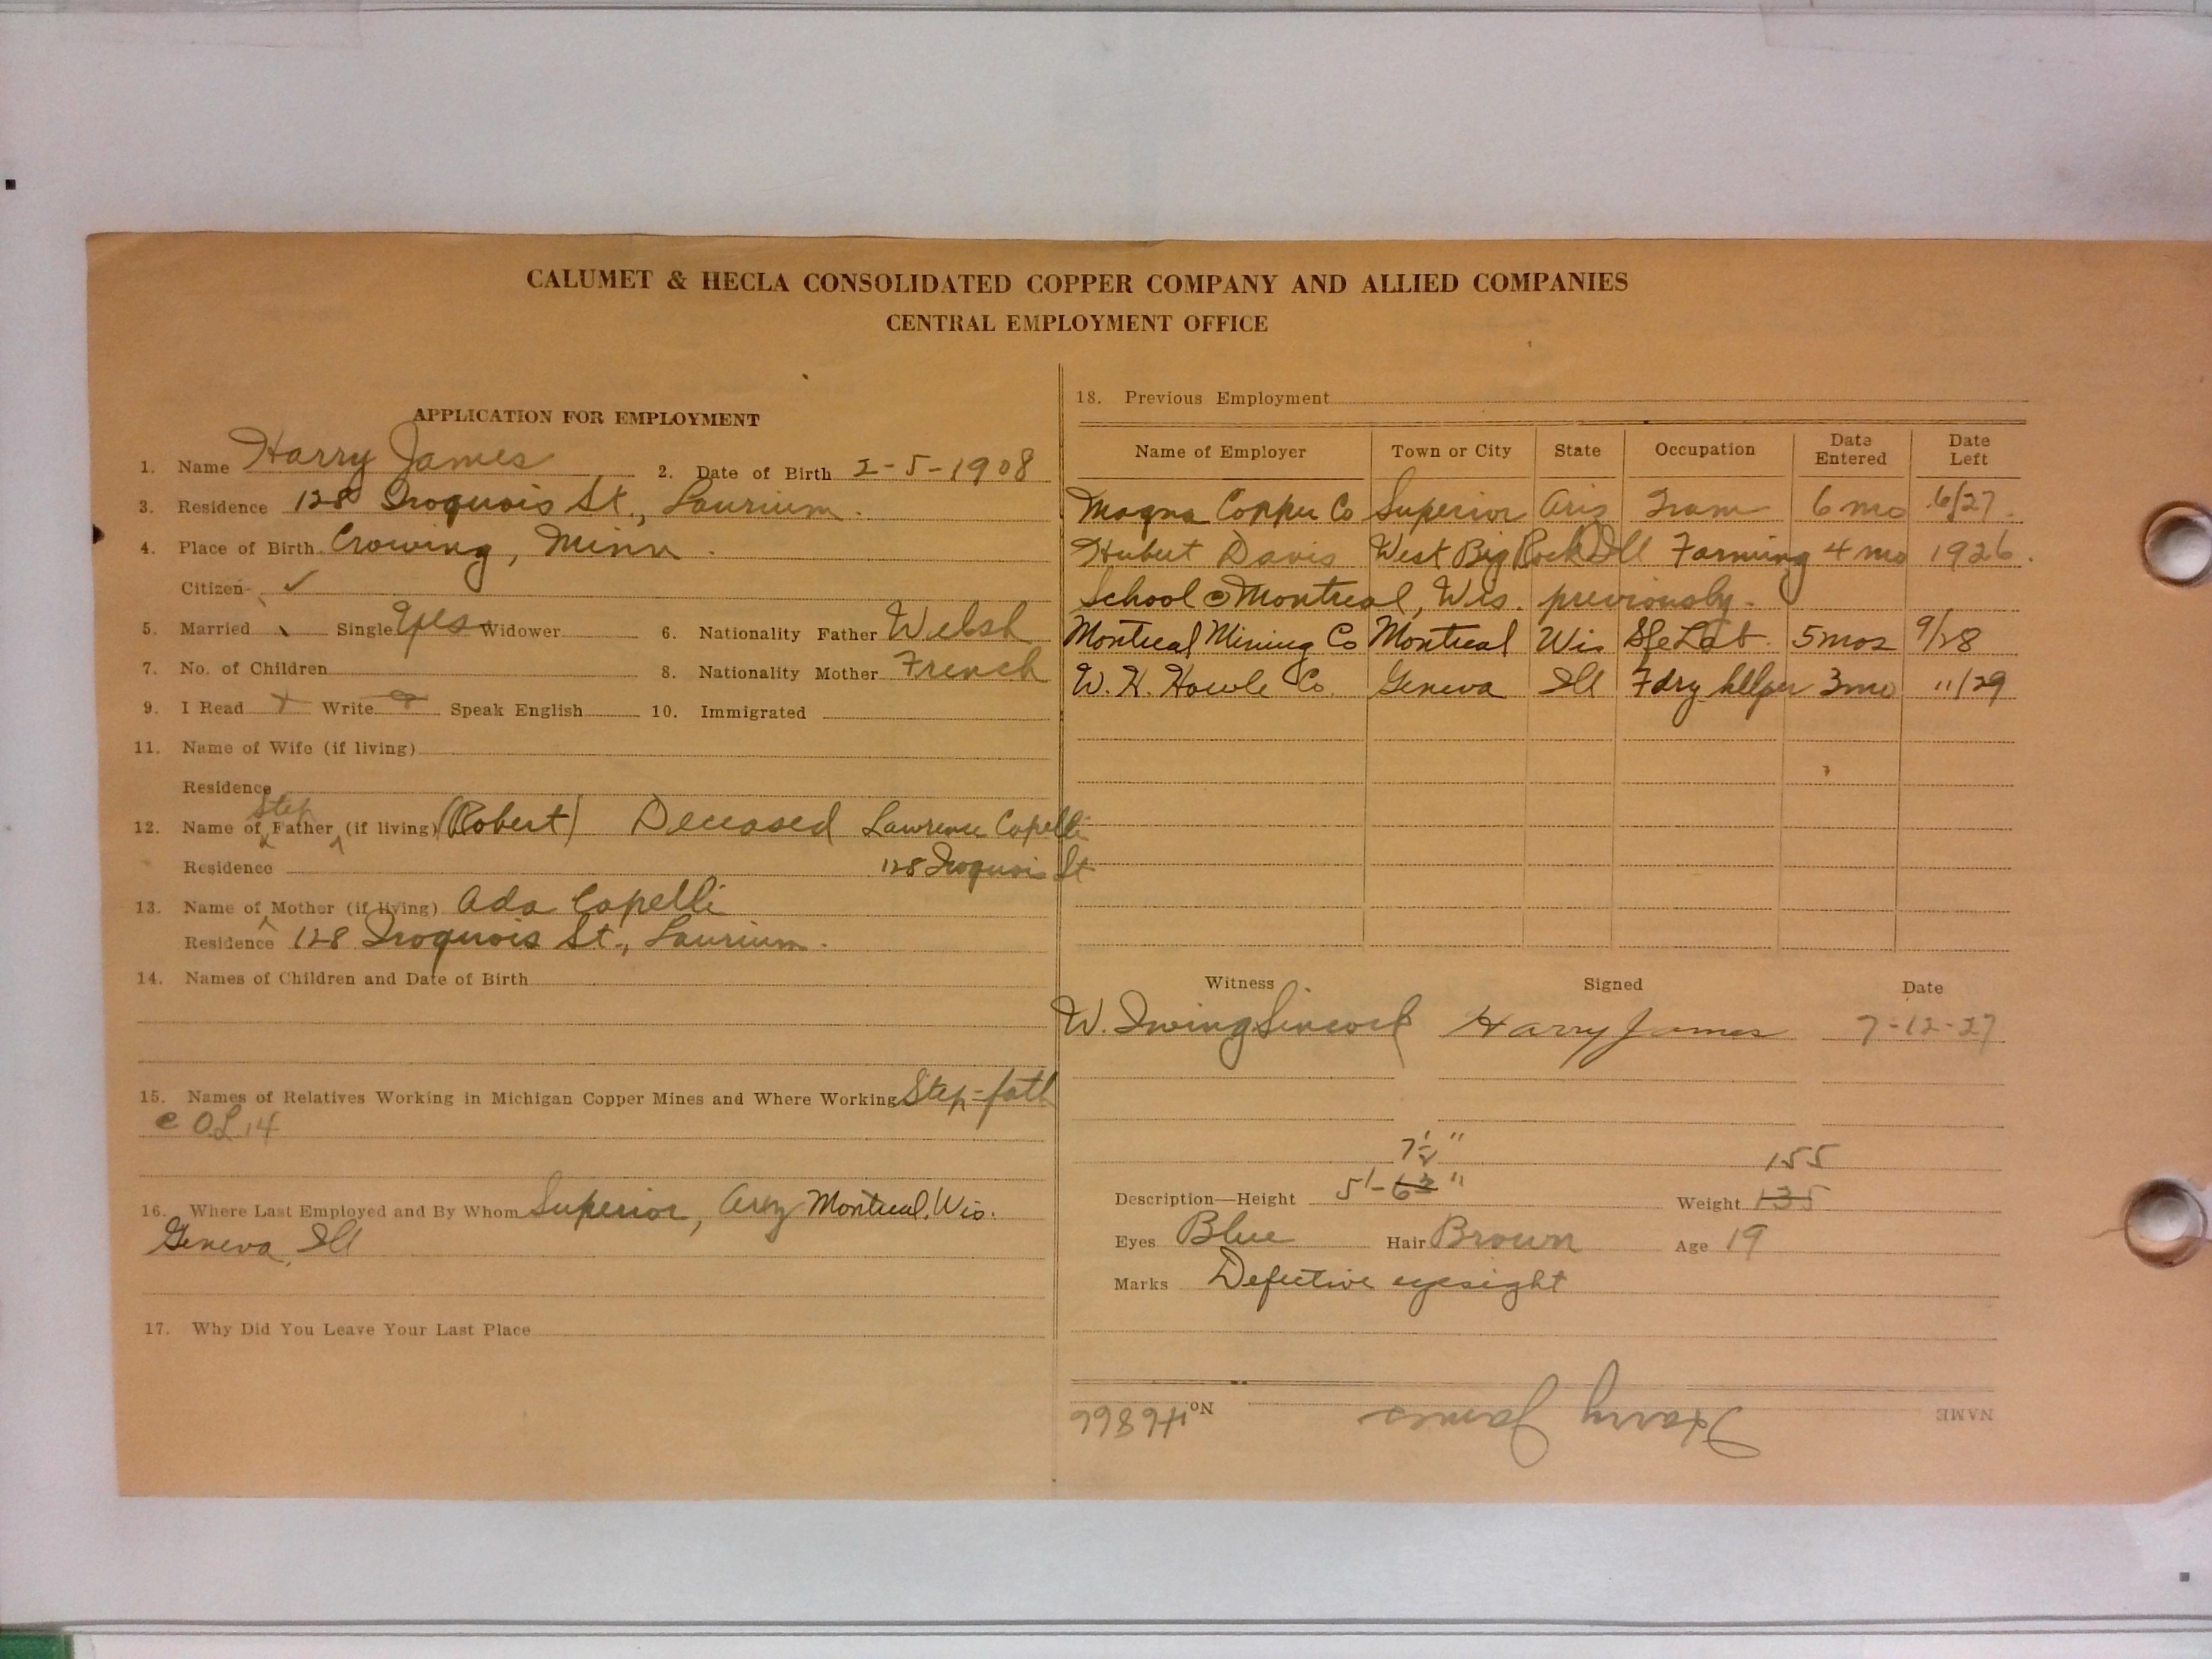 CALUMET & HECLA CONSOLIDATED COPPER COMPANY AND ALLIED COMPANIES
CENTRAL EMPLOYMENT OFFICE
APPLICATION FOR EMPLOYMENT
1. Name Harry James 2. Date of Birth 2-5-1908
3. Residence 128 Iroquois St., Laurium.
4. Place of Birth Crowing, Minn.
Citizen ✓
5. Married Single Yes Widower 6. Nationality Father Welsh
7. No. of Children 8. Nationality Mother French
9. I Read Write Speak English 10. Immigrated
11. Name of Wife (if living)
Residence
Step
12. Name of Father (if living) (Robert) Deceased Lawrence Capelli
Residence 128 Iroquois St
13. Name of Mother (if living) Ada Capelli
Residence 128 Iroquois St., Laurium.
14. Names of Children and Date of Birth
15. Names of Relatives Working in Michigan Copper Mines and Where Working Step-fath
OL 14
16. Where Last Employed and By Whom Superior, Ariz Montreal, Wis.
Geneva, Ill
17. Why Did You Leave Your Last Place
18. Previous Employment
Name of Employer Town or City State Occupation Date Entered Date Left
Magna Copper Co Superior Ariz Tram 6 mo 6/27.
Hubert Davis West Big Rock Ill Farming 4 mo 1926.
School @ Montreal, Wis. previously.
Montreal Mining Co Montreal Wis Sfe Lab. 5 mos 9/28
W. H. Howle Co. Geneva Ill Fdry helper 3 mo 11/29
Witness Signed Date
W. Irving Sincock Harry James 7-12-27
7 1/2" 155
Description—Height 5'- " Weight 135
Eyes Blue Hair Brown Age 19
Marks Defective eyesight
NAME Harry James No. H6866